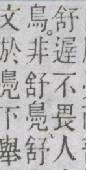 舒遲不畏人
鳥。非舒鳧、舒
文於鳧下舉